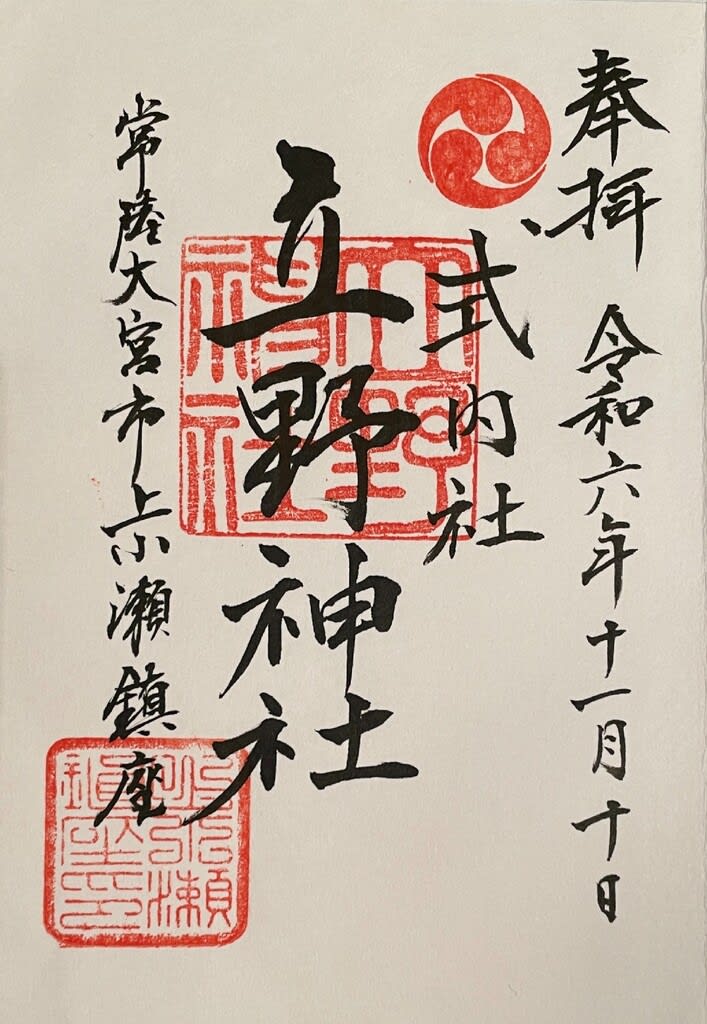 奉拝　令和六年十一月十日
式内社
立野神社
常陸大宮市上小瀬鎮座
立野神社
上小瀬鎮座印